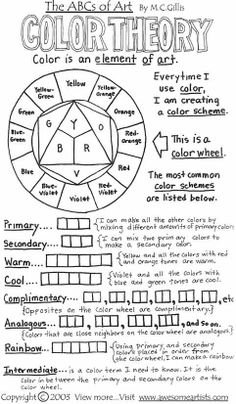 The ABCs of Art By M.C.Gillis
COLOR THEORY
Color is an element of art.
Everytime I
use color,
I am creating
a color scheme.
This is a
color wheel.
The most common
color schemes
are listed below.
Yellow
Yellow-Orange
Orange
Red-Orange
Red
Red-Violet
Violet
Blue-Violet
Blue
Blue-Green
Green
Yellow-Green
Y
O
R
V
B
G
Primary.... I can make all the other colors by
mixing different amounts of primary colors.
Secondary... I can mix two primary colors to
make a secondary color.
Warm.... Yellow and all the colors with
red and orange tones are warm.
Cool.... Violet and all the colors with
blue and green tones are cool.
Complimentary.... , , , etc.
Opposites on the color wheel are complimentary.
Analogous... , and so on.
Colors that are close neighbors on the color wheel are analogous.
Rainbow... Using primary and secondary
colors placed in order from
the color wheel, I can make a rainbow.
Intermediate... is a color term I need to know. It is the
color in between the primary and secondary colors on the
color wheel.
Copyright © 2003 View more...Visit www.awesomeartists.com